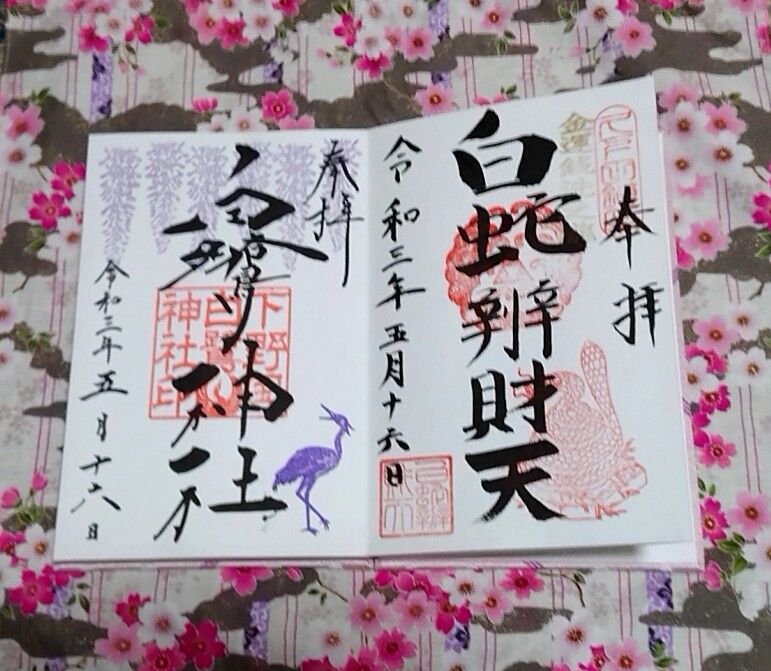 奉拝
白蛇辨財天
令和三年五月十六日
奉拝
白鷺神社
下野国
白鷺
神社印
令和三年五月十六日